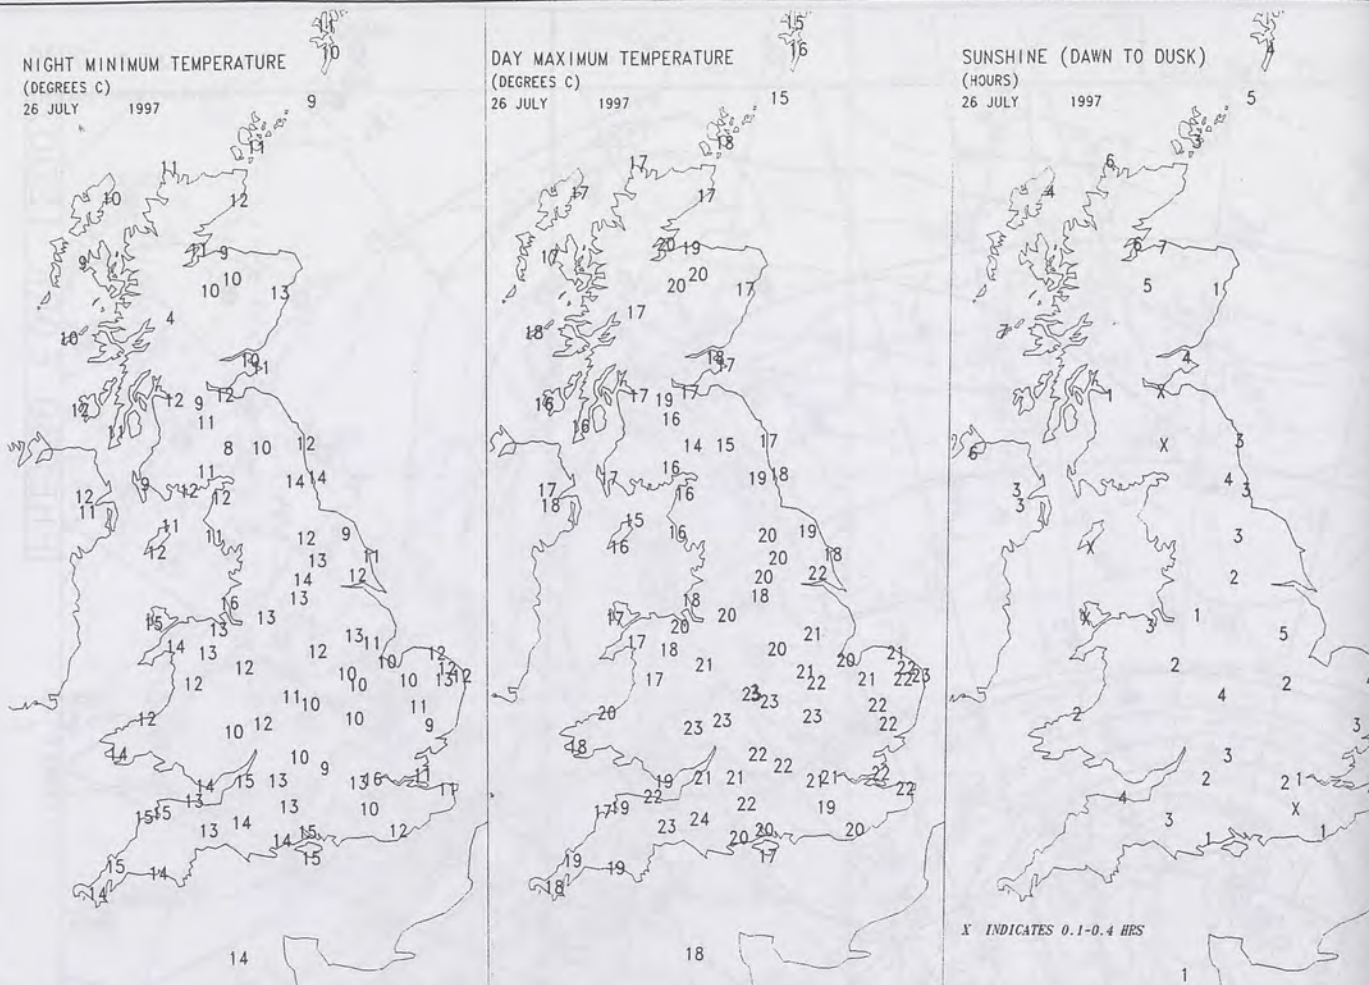 NIGHT MINIMUM TEMPERATURE
(DEGREES C)
26 JULY 1997
11
10
9
11
11
10 12
11 9
9
10
10 13
4
10
10
11
12 12 9 12
11 11
8 10 12
11
9 12 12 14 14
12
11
11 11 12 9
12 13 11
14 12
16 13
15 13 13
14 13 13 11
13 12 12 10 12
12 12
12 10 10 10 13
11 10 11
12 10 12 10 9
14 10 9
14 15 13 13 16 11
13 13 10 11
15 15
13 14 14 15 12
15 14 15
14
14
DAY MAXIMUM TEMPERATURE
(DEGREES C)
26 JULY 1997
15
16
15
18
17
17 17
20 19
17
20 20 17
17
18
18
17
16 17 19 17
16 16
14 15 17
16
17 16 19 18
17
18
15 16 20 19
16 20 18
20 22
18 18
17 20 20
17 18 21
21 20 20 21
17 21 22
21 22 23
23 23 22
20 23 23 23 22
18 22 22
19 21 21 21 21 22
22 22
17 19 22 19
23 24 20 20 20
19 19 17
18
18
SUNSHINE (DAWN TO DUSK)
(HOURS)
26 JULY 1997
4
4
5
3
6
4
6 7
5 1
7
4
1 X
6 X 3
4
3 3
3
X 3
2
X 3 1
5
2
4 2
2 3
3
2 2 1
4 X
3 1 1
X INDICATES 0.1-0.4 HRS
1